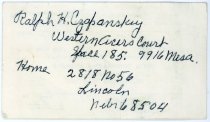 Ralph H. Czopanskiy
Western Acers Court
Space 185. 9916 Mesa.
Home 2818 No 56
Lincoln
Nebr 68504